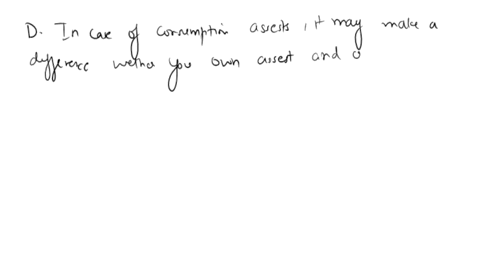 D. In case of consumption assests, it may make a
difference wether you own assest and o